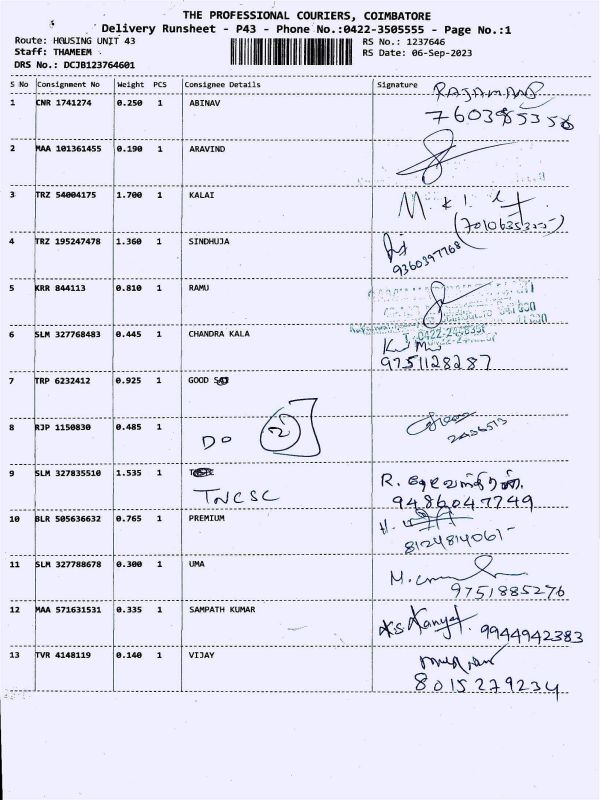 THE PROFESSIONAL COURIERS, COIMBATORE
Delivery Runsheet - P43 - Phone No.:0422-3505555 - Page No.:1
Route: HOUSING UNIT 43
RS No.: 1237646
Staff: THAMEEM
RS Date: 06-Sep-2023
DRS No.: DCJB123764601
S No Consignment No Weight PCS Consignee Details Signature
RAJAMANI
1 CNR 1741274 0.250 1 ABINAV
7603853
2 MAA 101361455 0.190 1 ARAVIND
3 TRZ 54004175 1.700 1 KALAI
4 TRZ 195247478 1.360 1 SINDHUJA
9360397768
5 KRR 844113 0.810 1 RAMU
6 SLM 327768483 0.445 1 CHANDRA KALA
9751128287
7 TRP 6232412 0.925 1 GOOD
8 RJP 1150830 0.485 1
DO 2
9 SLM 327835510 1.535 1
TNCSC
R.
9486047749
10 BLR 505636632 0.765 1 PREMIUM
8124814061-
11 SLM 327788678 0.300 1 UMA
9751885276
12 MAA 571631531 0.335 1 SAMPATH KUMAR
9944942383
13 TVR 4148119 0.140 1 VIJAY
8015279234